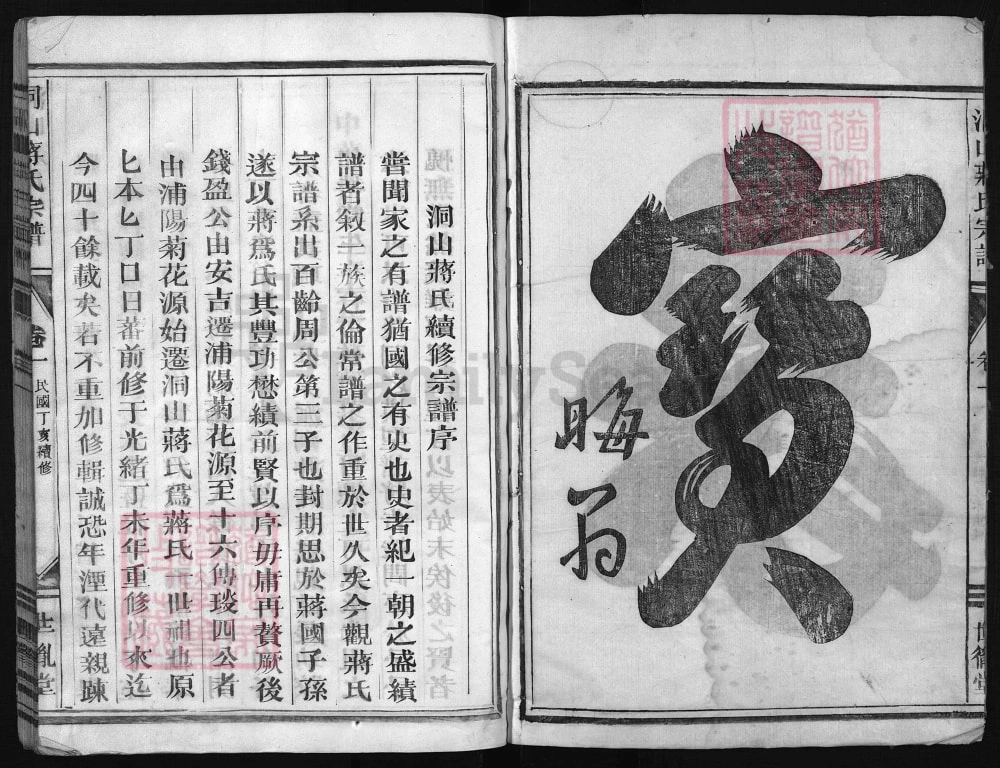 寶
晦翁
洞山蔣氏續修宗譜序
嘗聞家之有譜猶國之有史也史者紀一朝之盛績
譜者敘一族之倫常譜之作重於世久矣今觀蔣氏
宗譜系出百齡周公第三子也封期思於蔣國子孫
遂以蔣爲氏其豐功懋績前賢以序毋庸再贅厥後
錢盈公由安吉遷浦陽菊花源至十六傳琰四公者
由浦陽菊花源始遷洞山蔣氏爲蔣氏 世祖也原
匕本匕丁口日蕃前修于光緒丁未年重修以來迄
今四十餘載矣若不重加修輯誠恐年湮代遠親踈
洞山蔣氏宗譜
卷一
民國丁亥續修
世胤堂